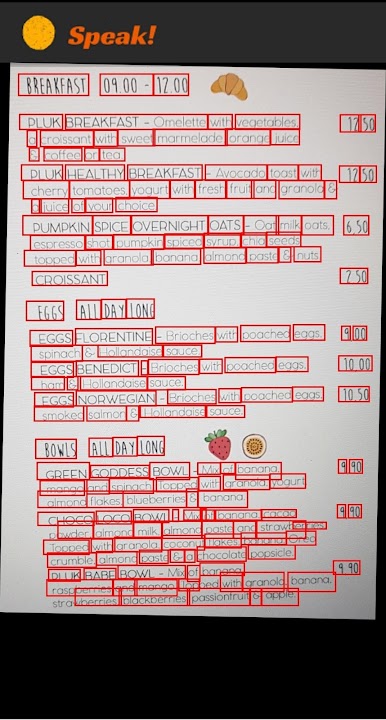 Speak!
BREAKFAST 09.00 - 12.00
PLUK BREAKFAST - Omelette with vegetables, 12.50
a croissant with sweet marmelade, orange juice
& coffee or tea
PLUK HEALTHY BREAKFAST - Avocado toast with 12.50
cherry tomatoes, yogurt with fresh fruit and granola &
a juice of your choice
PUMPKIN SPICE OVERNIGHT OATS - Oat milk oats, 6.50
espresso shot, pumpkin spiced syrup, chia seeds
topped with granola, banana, almond paste & nuts
CROISSANT 2.50
EGGS ALL DAY LONG
EGGS FLORENTINE - Brioches with poached eggs, 9.00
spinach & Hollandaise sauce.
EGGS BENEDICT - Brioches with poached eggs, 10.00
ham & Hollandaise sauce.
EGGS NORWEGIAN - Brioches with poached eggs, 10.50
smoked salmon & Hollandaise sauce
BOWLS ALL DAY LONG
GREEN GODDESS BOWL - Mix of banana, 9.90
mango and spinach. Topped with granola, yogurt
almond flakes, blueberries & banana.
CHOCO LOCO BOWL - Mix of banana, cacao 9.90
powder, almond milk, almond paste and strawberries.
Topped with granola, coconut flakes, banana, Oreo
crumble, almond paste & a chocolate popsicle.
PLUK BABE BOWL - Mix of banana, 9.90
raspberries and mango. Topped with granola, banana,
strawberries, blackberries, passionfruit & apple.